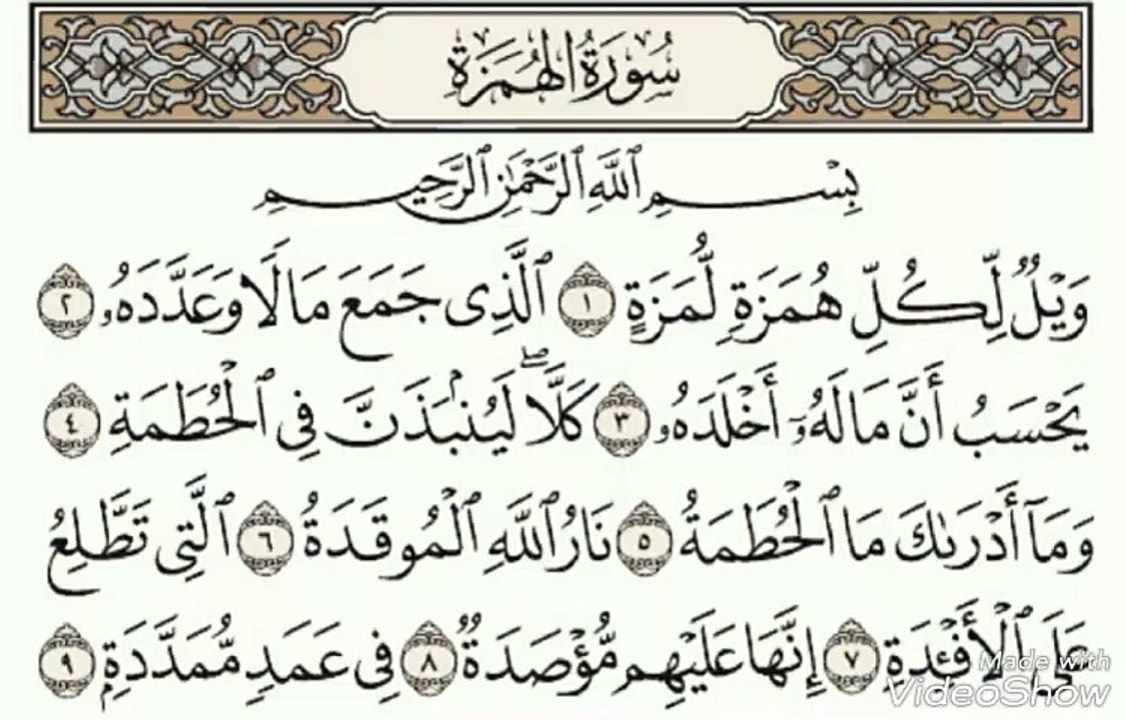 سُورَةُ الهُمَزَةِ
بِسْمِ ٱللَّهِ ٱلرَّحْمَٰنِ ٱلرَّحِيمِ
وَيْلٌ لِّكُلِّ هُمَزَةٍ لُّمَزَةٍ ١ ٱلَّذِى جَمَعَ مَالًا وَعَدَّدَهُۥ ٢
يَحْسَبُ أَنَّ مَالَهُۥٓ أَخْلَدَهُۥ ٣ كَلَّا ۖ لَيُنۢبَذَنَّ فِى ٱلْحُطَمَةِ ٤
وَمَآ أَدْرَىٰكَ مَا ٱلْحُطَمَةُ ٥ نَارُ ٱللَّهِ ٱلْمُوقَدَةُ ٦ ٱلَّتِى تَطَّلِعُ
عَلَى ٱلْأَفْـِٔدَةِ ٧ إِنَّهَا عَلَيْهِم مُّؤْصَدَةٌ ٨ فِى عَمَدٍ مُّمَدَّدَةٍۭ ٩
Made with
VideoShow